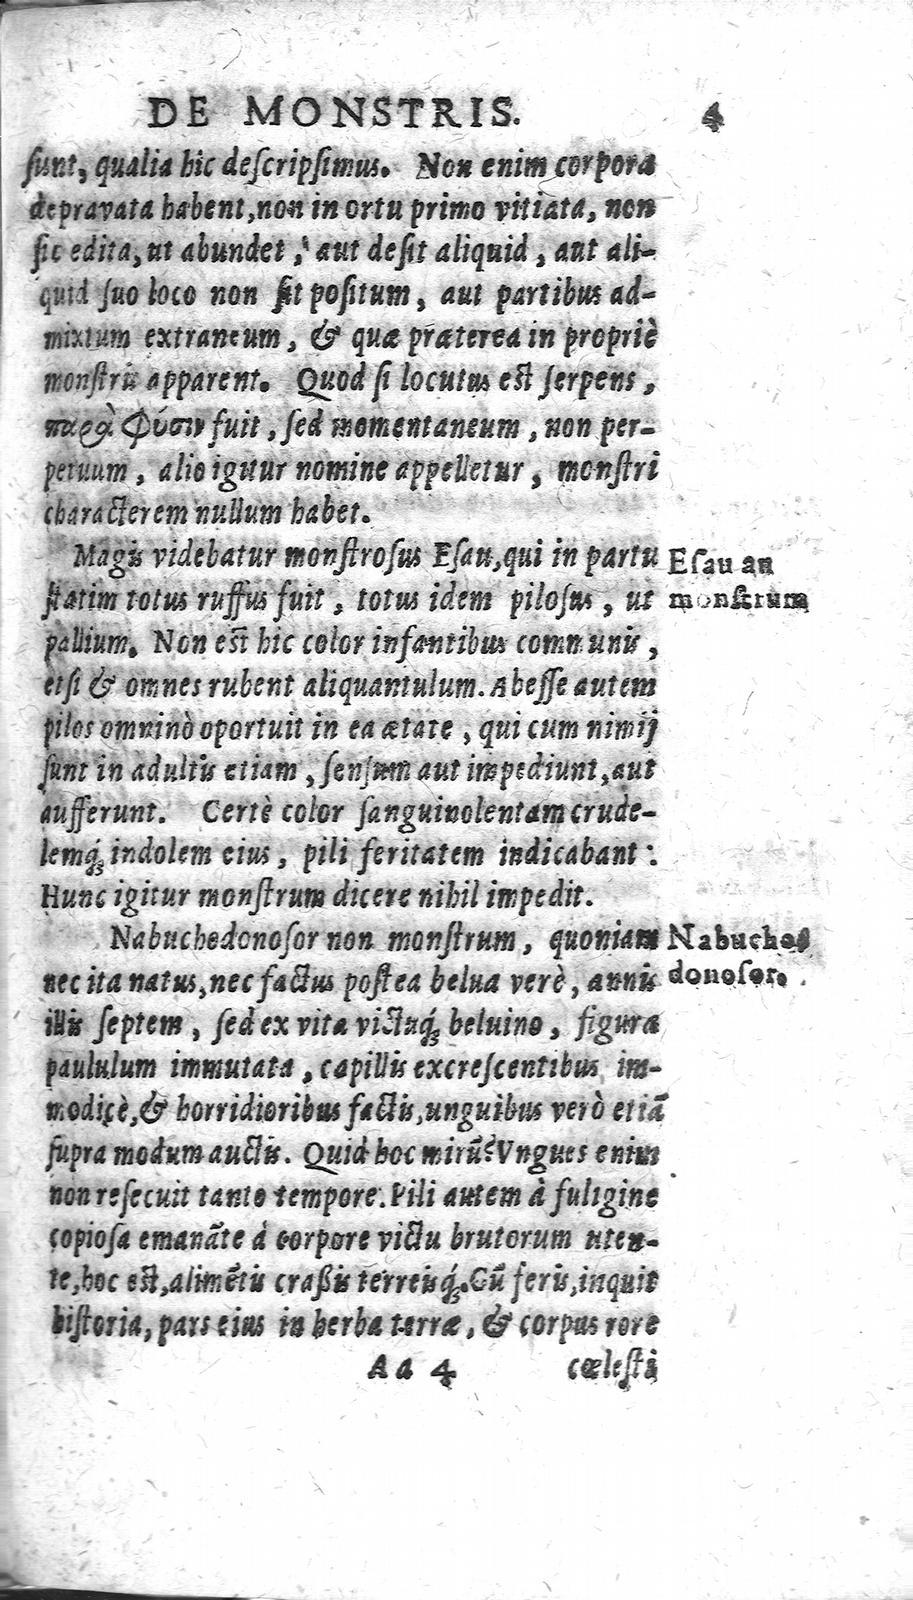 DE MONSTRIS. 4
ſunt, qualia hic deſcripſimus. Non enim corpora
depravata habent, non in ortu primo vitiata, non
ſic edita, ut abundet, aut deſit aliquid, aut ali-
quid ſuo loco non ſit poſitum, aut partibus ad-
mixtum extraneum, & quæ præterea in propriè
monſtris apparent. Quod ſi locutus eſt ſerpens,
παρὰ φύσιν fuit, ſed momentaneum, non per-
petuum, alio igitur nomine appelletur, monſtri
characterem nullum habet.
Magis videbatur monſtroſus Eſau, qui in partu
ſtatim totus ruffus fuit, totus idem piloſus, ut
pallium. Non eſt hic color infantibus communis,
etſi & omnes rubent aliquantulum. Abeſſe autem
pilos omninò oportuit in ea ætate, qui cum nimij
ſunt in adultis etiam, ſenſum aut impediunt, aut
aufferunt. Certè color ſanguinolentam crude-
lemq́ꝫ indolem eius, pili feritatem indicabant:
Hunc igitur monſtrum dicere nihil impedit.
Eſau an
monſtrum
Nabuchodonoſor non monſtrum, quoniam
nec ita natus, nec factus poſtea belua verè, annis
illis ſeptem, ſed ex vita victuq́ꝫ beluino, figura
paululum immutata, capillis excreſcentibus im-
modicè, & horridioribus factis, unguibus verò etiã
ſupra modum auctis. Quid hoc mirũ? Vngues enim
non reſecuit tanto tempore. Pili autem à fuligine
copioſa emanãte à corpore victu brutorum uten-
te, hoc eſt, alimẽtis craßis terreisq́ꝫ. Cũ feris, inquit
hiſtoria, pars eius in herba terræ, & corpus rore
Nabucho-
donoſor.
Aa 4 cœleſti